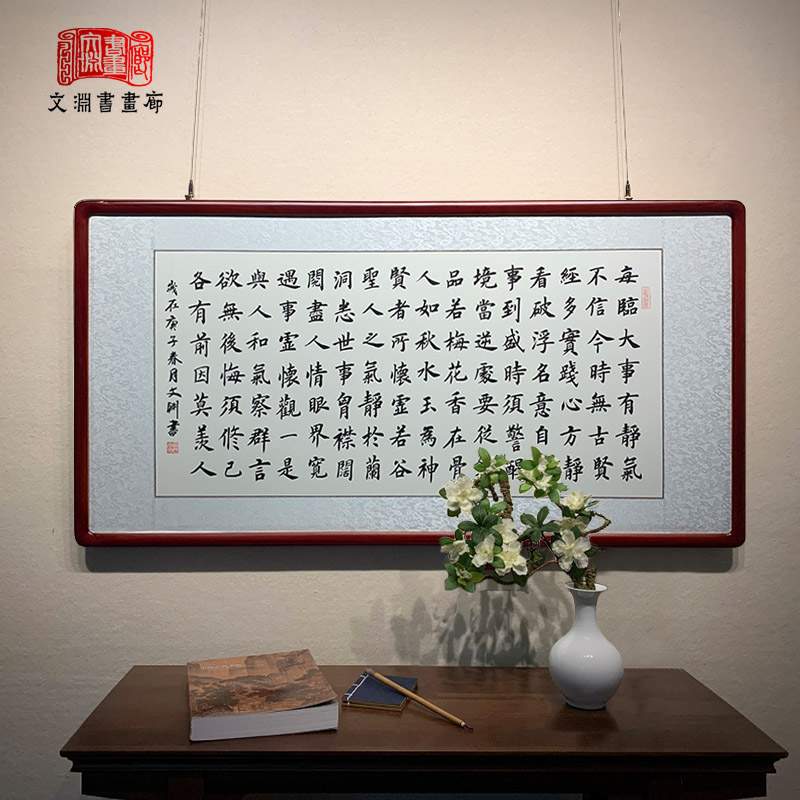 文淵書畫廊
每臨大事有靜氣
不信今時無古賢
經多實踐心方靜
看破浮名意自
事到盛時須警醒
境當逆處要從
品若梅花香在骨
人如秋水玉為神
賢者所懷靈若谷
聖人之氣靜於蘭
洞悉世事胷襟闊
閱盡人情眼界寬
遇事靈懷觀一是
與人和氣察群言
欲無後悔須修己
各有前因莫羨人
歲在庚子春月文淵書